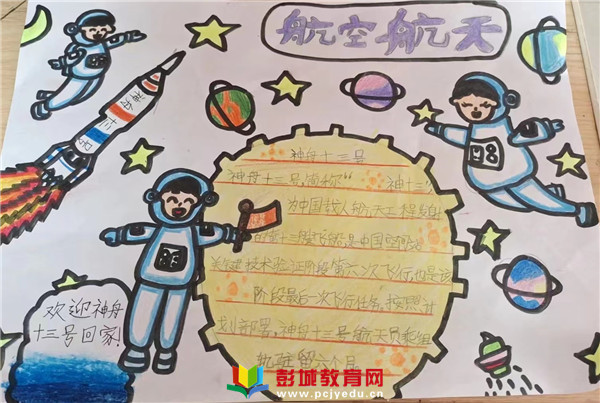 航空航天
神舟十三
神舟十三号
神舟十三号,简称“神十三”
为中国载人航天工程发射
的第十三艘飞船,是中国空间站
关键技术验证阶段第六次飞行,也是该
阶段最后一次飞行任务,按照计
划部署,神舟十三号航天员乘组
轨驻留六个月
欢迎神舟
十三号回家!
彭城教育网
www.pcjyedu.cn